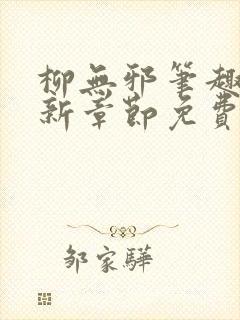 柳無邪筆趣
新章節免費
邹家驊